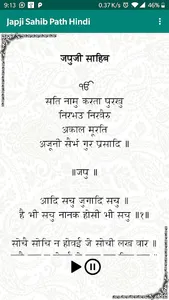 9:13 P 0.37 K/s 51%
Japji Sahib Path Hindi
जपुजी साहिब
ੴ
सति नामु करता पुरखु
निरभउ निरवैरु
अकाल मूरति
अजूनी सैभं गुर प्रसादि ॥
॥जपु ॥
आदि सचु जुगादि सचु ॥
है भी सचु नानक होसी भी सचु ॥१॥
सोचै सोचि न होवई जे सोची लख वार ॥